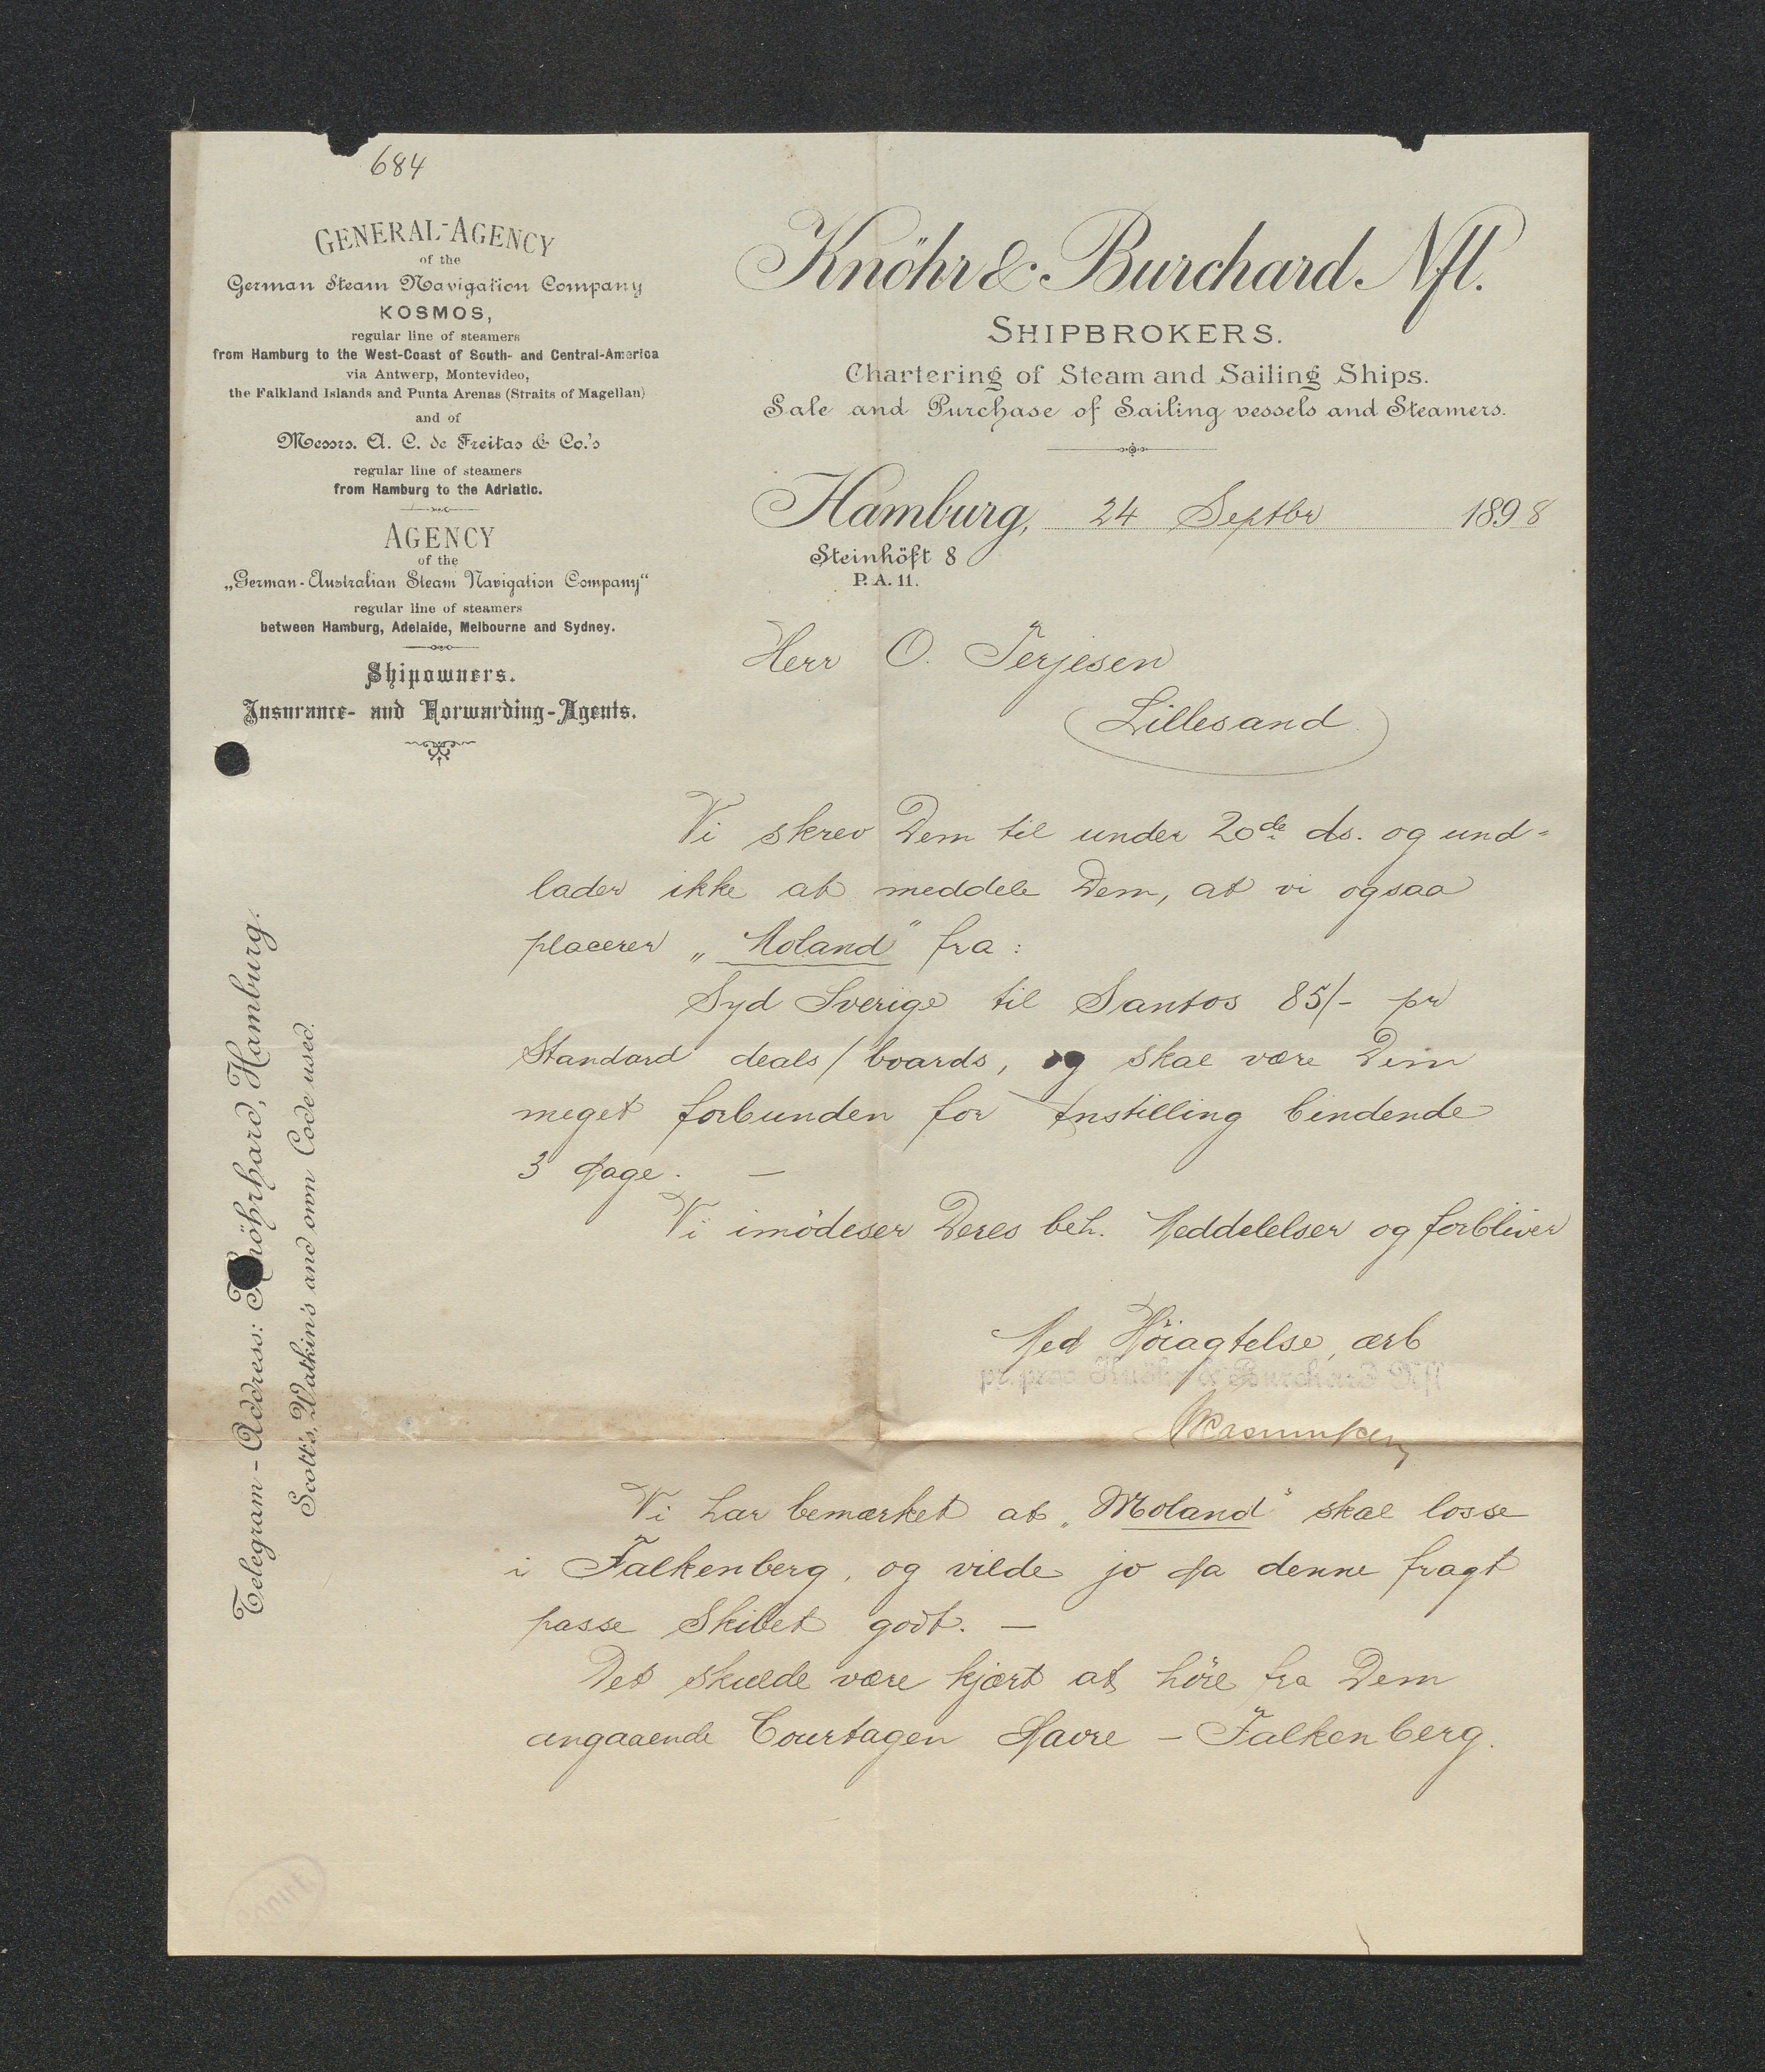 684
GENERAL-AGENCY
of the
German Steam Navigation Company
KOSMOS,
regular line of steamers
from Hamburg to the West-Coast of South- and Central-America
via Antwerp, Montevideo,
the Falkland Islands and Punta Arenas (Straits of Magellan)
and of
Messrs. A. C. de Freitas & Co.'s
regular line of steamers
from Hamburg to the Adriatic.
AGENCY
of the
„German-Australian Steam Navigation Company“
regular line of steamers
between Hamburg, Adelaide, Melbourne and Sydney.
Shipowners.
Insurance- and Forwarding-Agents.
Telegram-Address: Knöhrhard, Hamburg.
Scott's, Watkin's and own Code used.
Knöhr & Burchard Nfl.
SHIPBROKERS.
Chartering of Steam and Sailing Ships.
Sale and Purchase of Sailing vessels and Steamers.
Hamburg, 24 Septbr 1898
Steinhöft 8
P. A. 11.
Herr O. Terjesen
Lillesand
Vi skrev Dem til under 20de ds. og und-
lader ikke at meddele Dem, at vi ogsaa
placerer „Moland" fra:
Syd Sverige til Santos 85/- pr
Standard deals/boards, og skal være Dem
meget forbunden for Instilling bindende
3 Dage. —
Vi imödeser Deres beh. Meddelelser og forbliver
Med Höiagtelse, ærb
pr. proc. Knöhr & Burchard Nfl
Rasmussen
Vi har bemærket at „Moland" skal losse
i Falkenberg, og vilde jo da denne fragt
passe Skibet godt. —
Det skulde være kjært at höre fra Dem
angaaende Courtagen Havre - Falkenberg.